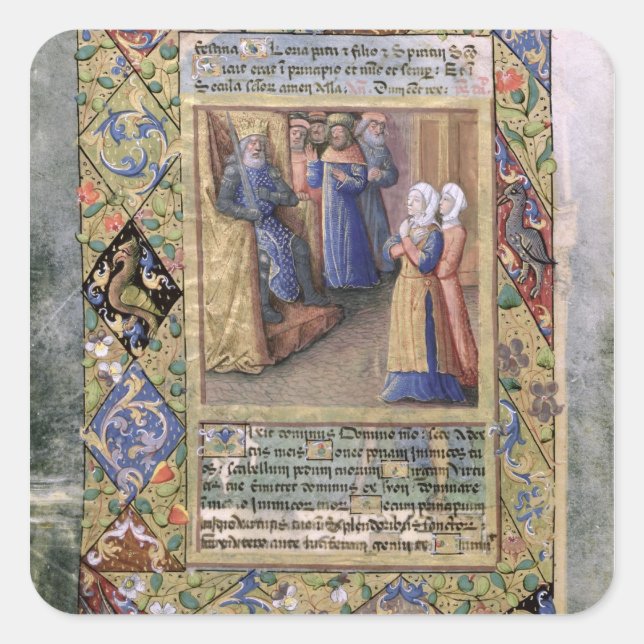 festina Gloria patri & filio & Spiritui Sco
Sicut erat i principio et nuc et semp: Et i
Secula seclor amen Alla. An Dum
Dixit dominus Domino mo: sede Adex
tris meis Donec ponam inimicos tu
os: scabellum pedum tuorum Virgam Virtu
tis tue Emittet dominus ex syon: Dominare
i medio Inimicor tuor Tecum principium
virtutis tue in splendoribus sanctor:
ex utero ante luciferum genui te